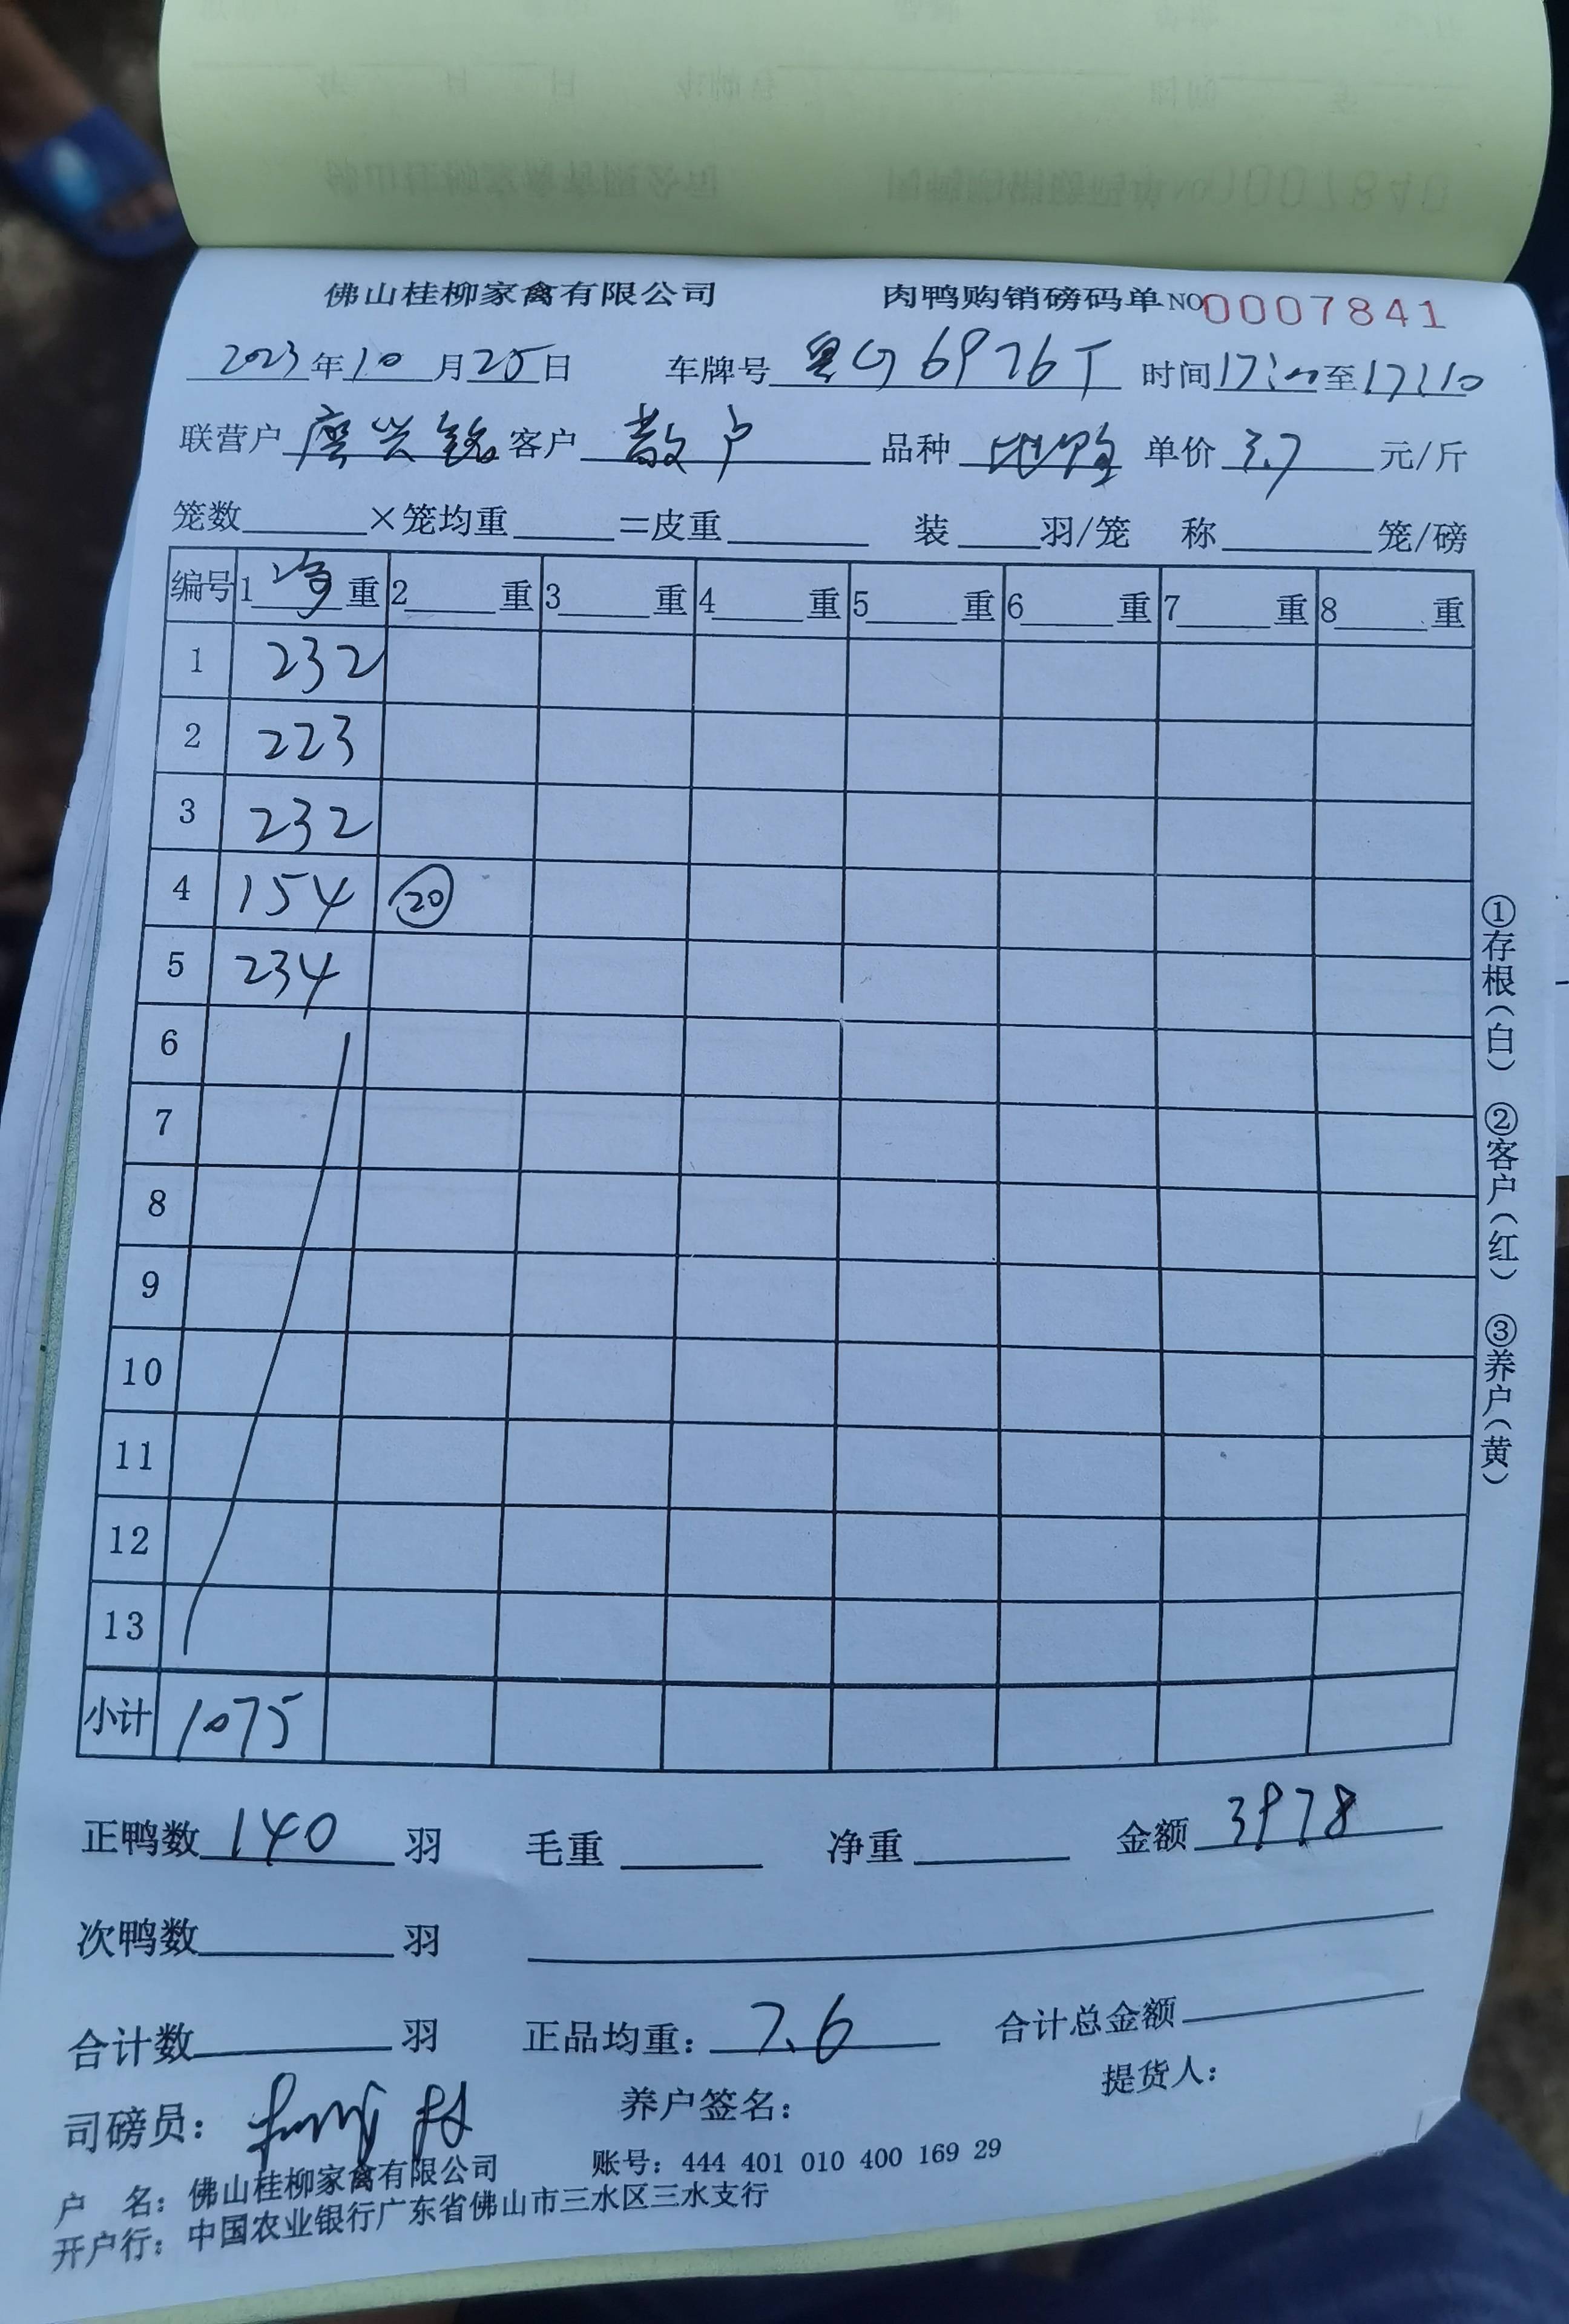 佛山桂柳家禽有限公司 肉鸭购销磅码单 NO 0007841
2023年10月25日 车牌号 粤G6976T 时间17:00至17:10
联营户 廖兴铭 客户 散户 品种 单价 3.7 元/斤
笼数 ×笼均重 =皮重 装 羽/笼 称 笼/磅
编号 1 净 重 2 重 3 重 4 重 5 重 6 重 7 重 8 重
1 232
2 223
3 232
4 154 20
5 234
6
7
8
9
10
11
12
13
小计 1075
正鸭数 140 羽 毛重 净重 金额 3978
次鸭数 羽
合计数 羽 正品均重: 7.6 合计总金额
司磅员: 养户签名: 提货人:
户 名: 佛山桂柳家禽有限公司 账号: 444 401 010 400 169 29
开户行: 中国农业银行广东省佛山市三水区三水支行
①存根(白) ②客户(红) ③养户(黄)